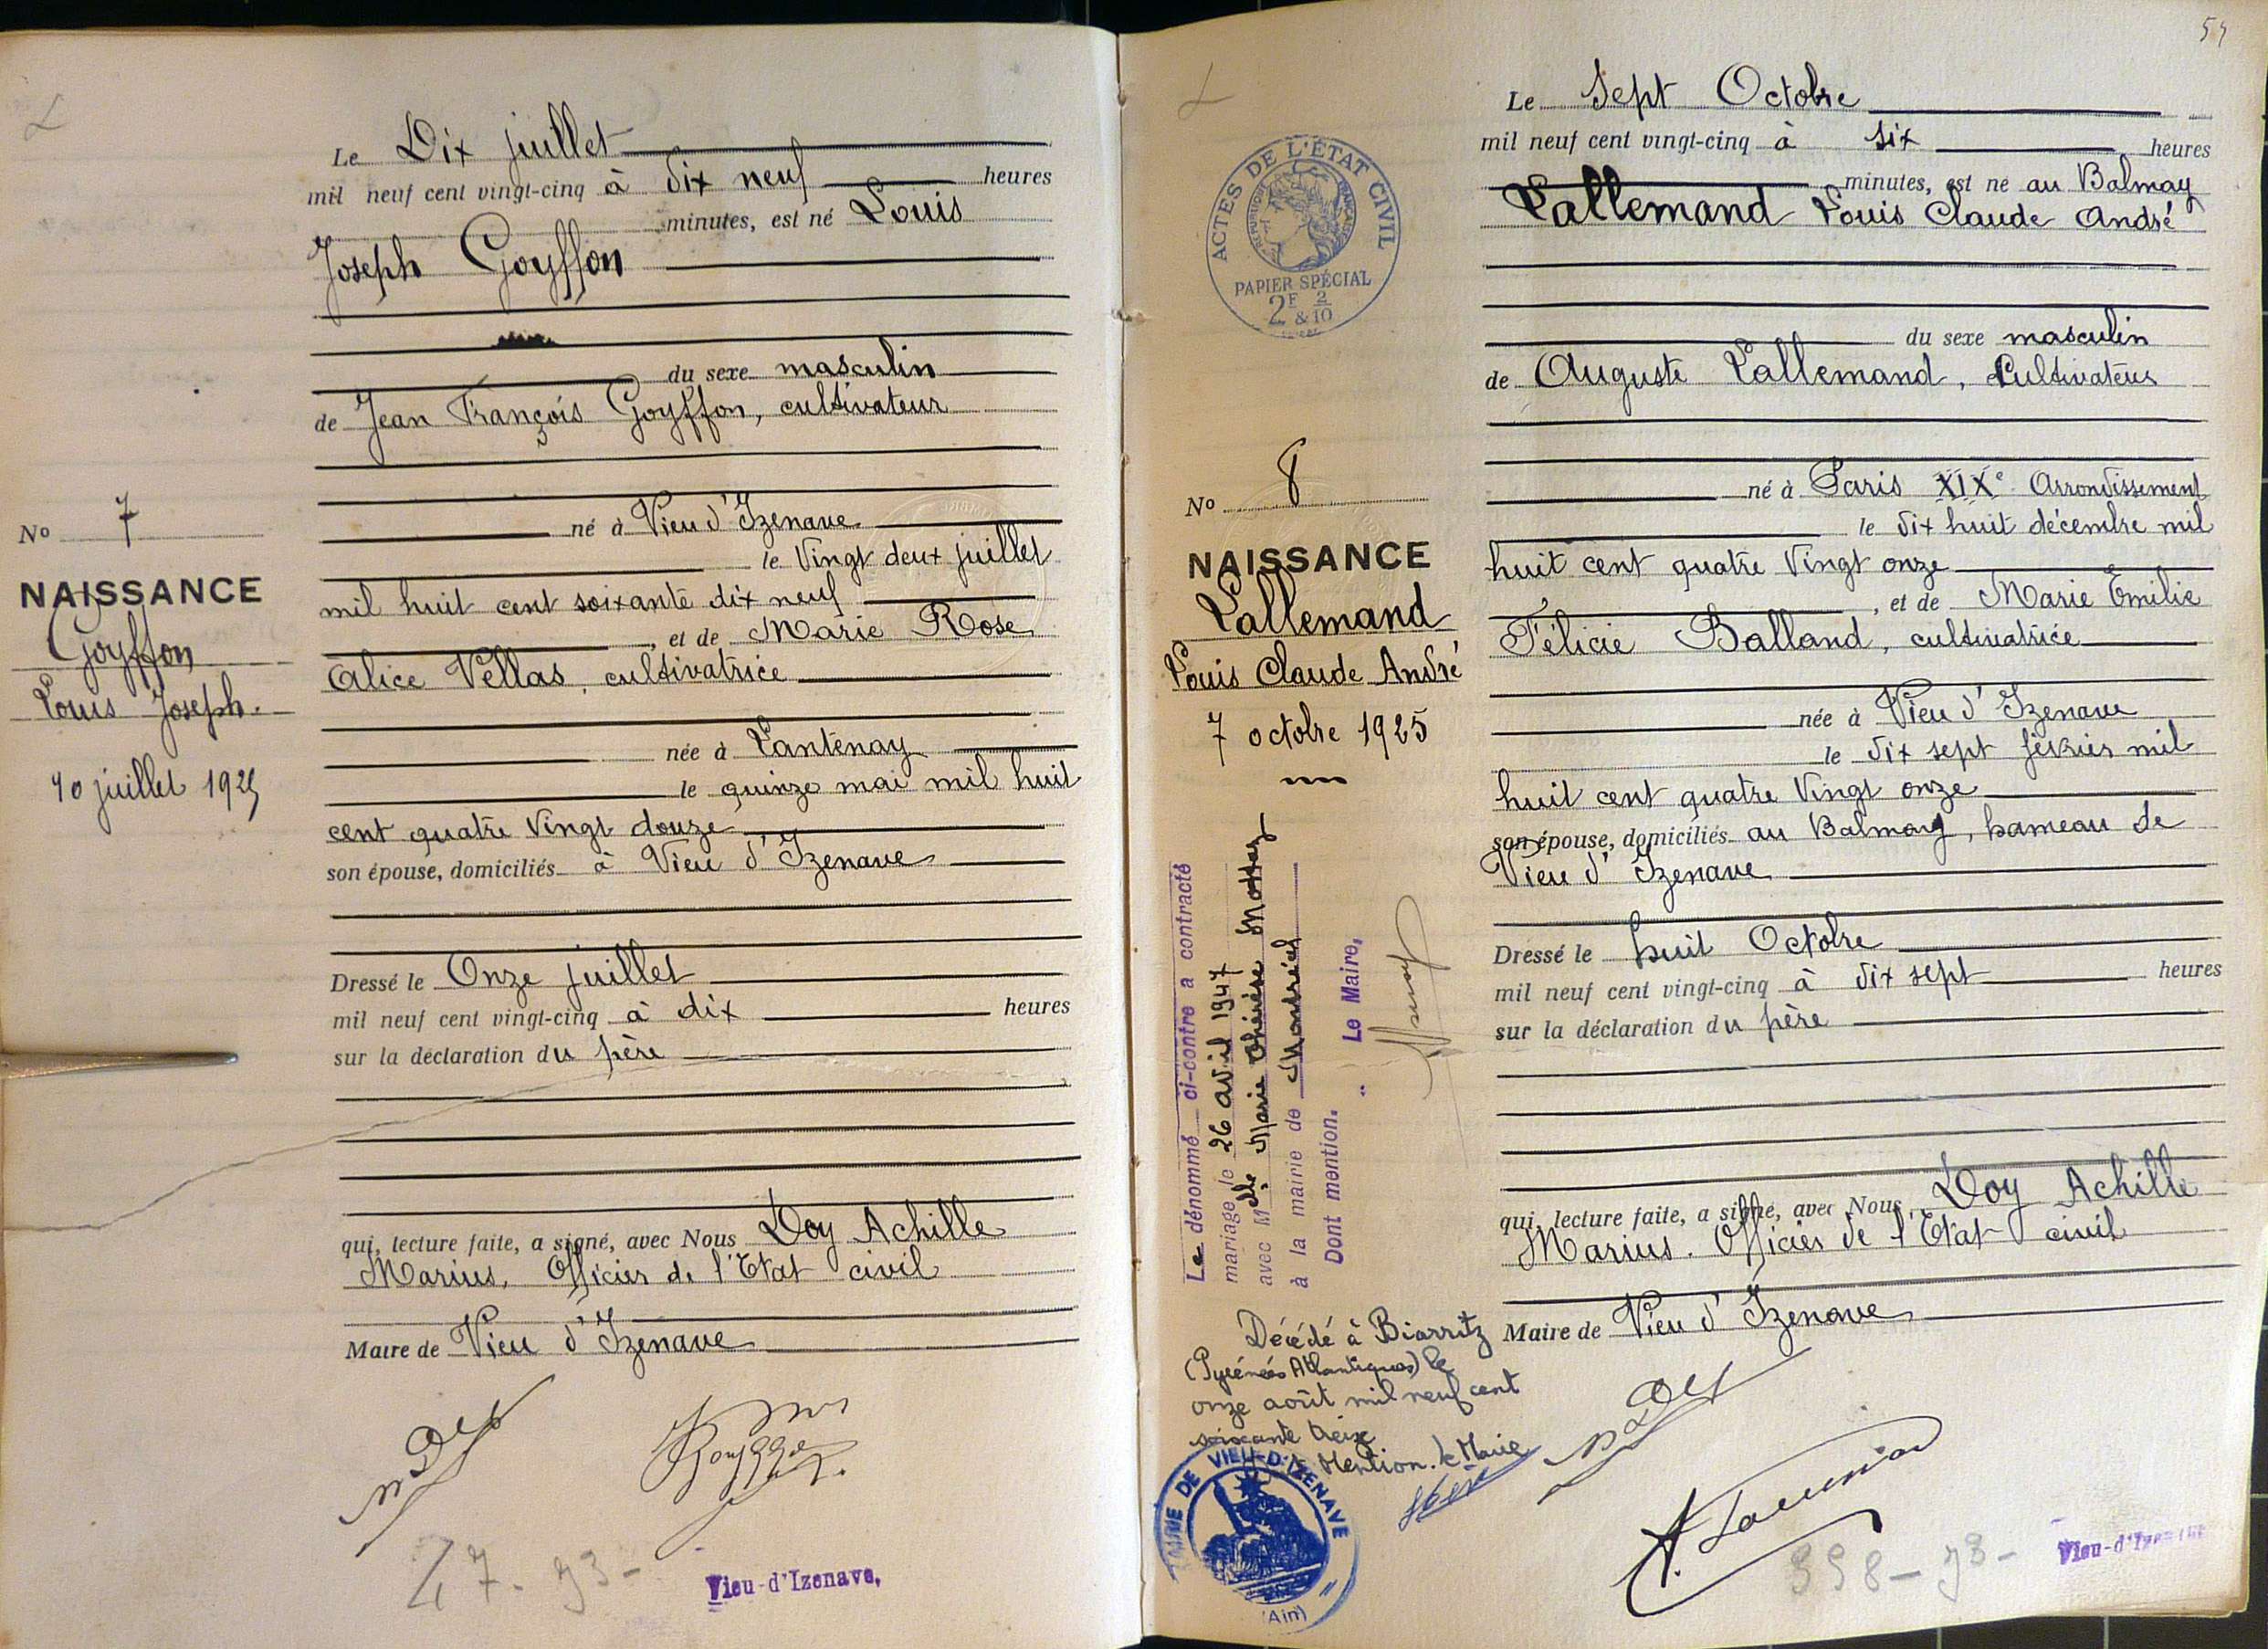 Le Dix juillet
mil neuf cent vingt-cinq à dix neuf heures
minutes, est né Louis
Joseph Goyffon
du sexe masculin
de Jean François Goyffon, cultivateur
né à Vieu d'Izenave
le vingt deux juillet
mil huit cent soixante dix neuf
, et de Marie Rose
Alice Vellas, cultivatrice
née à Lantenay
le quinze mai mil huit
cent quatre vingt douze
son épouse, domiciliés à Vieu d'Izenave
Dressé le Onze juillet
mil neuf cent vingt-cinq à dix heures
sur la déclaration du père
qui, lecture faite, a signé, avec Nous Doy Achille
Marius, Officier de l'Etat civil
Maire de Vieu d'Izenave
No 7
NAISSANCE
Goyffon
Louis Joseph
10 juillet 1925
47-93-
Vieu-d'Izenave,
54
Le Sept Octobre
mil neuf cent vingt-cinq à six heures
minutes, est né au Balmay
Lallemand Louis Claude André
du sexe masculin
de Auguste Lallemand, Cultivateur
né à Paris XIXe Arrondissement
le dix huit décembre mil
huit cent quatre vingt onze
, et de Marie Emilie
Félicie Balland, cultivatrice
née à Vieu d'Izenave
le dix sept février mil
huit cent quatre vingt onze
son épouse, domiciliés au Balmay, hameau de
Vieu d'Izenave
Dressé le huit Octobre
mil neuf cent vingt-cinq à dix sept heures
sur la déclaration du père
qui, lecture faite, a signé, avec Nous Doy Achille
Marius. Officier de l'Etat civil
Maire de Vieu d'Izenave
ACTES DE L'ÉTAT CIVIL
PAPIER SPÉCIAL
2F & 2/10
No 8
NAISSANCE
Lallemand
Louis Claude André
7 octobre 1925
Le dénommé ci-contre a contracté
mariage le 26 avril 1947
avec Melle Marie Thérèse
à la mairie de Montréal
Dont mention. Le Maire,
Décédé à Biarritz
(Pyrénées Atlantiques) le
onze août mil neuf cent
soixante treize
Mention. le Maire
MAIRIE DE VIEU-D'IZENAVE
(Ain)
Vieu-d'Izenave